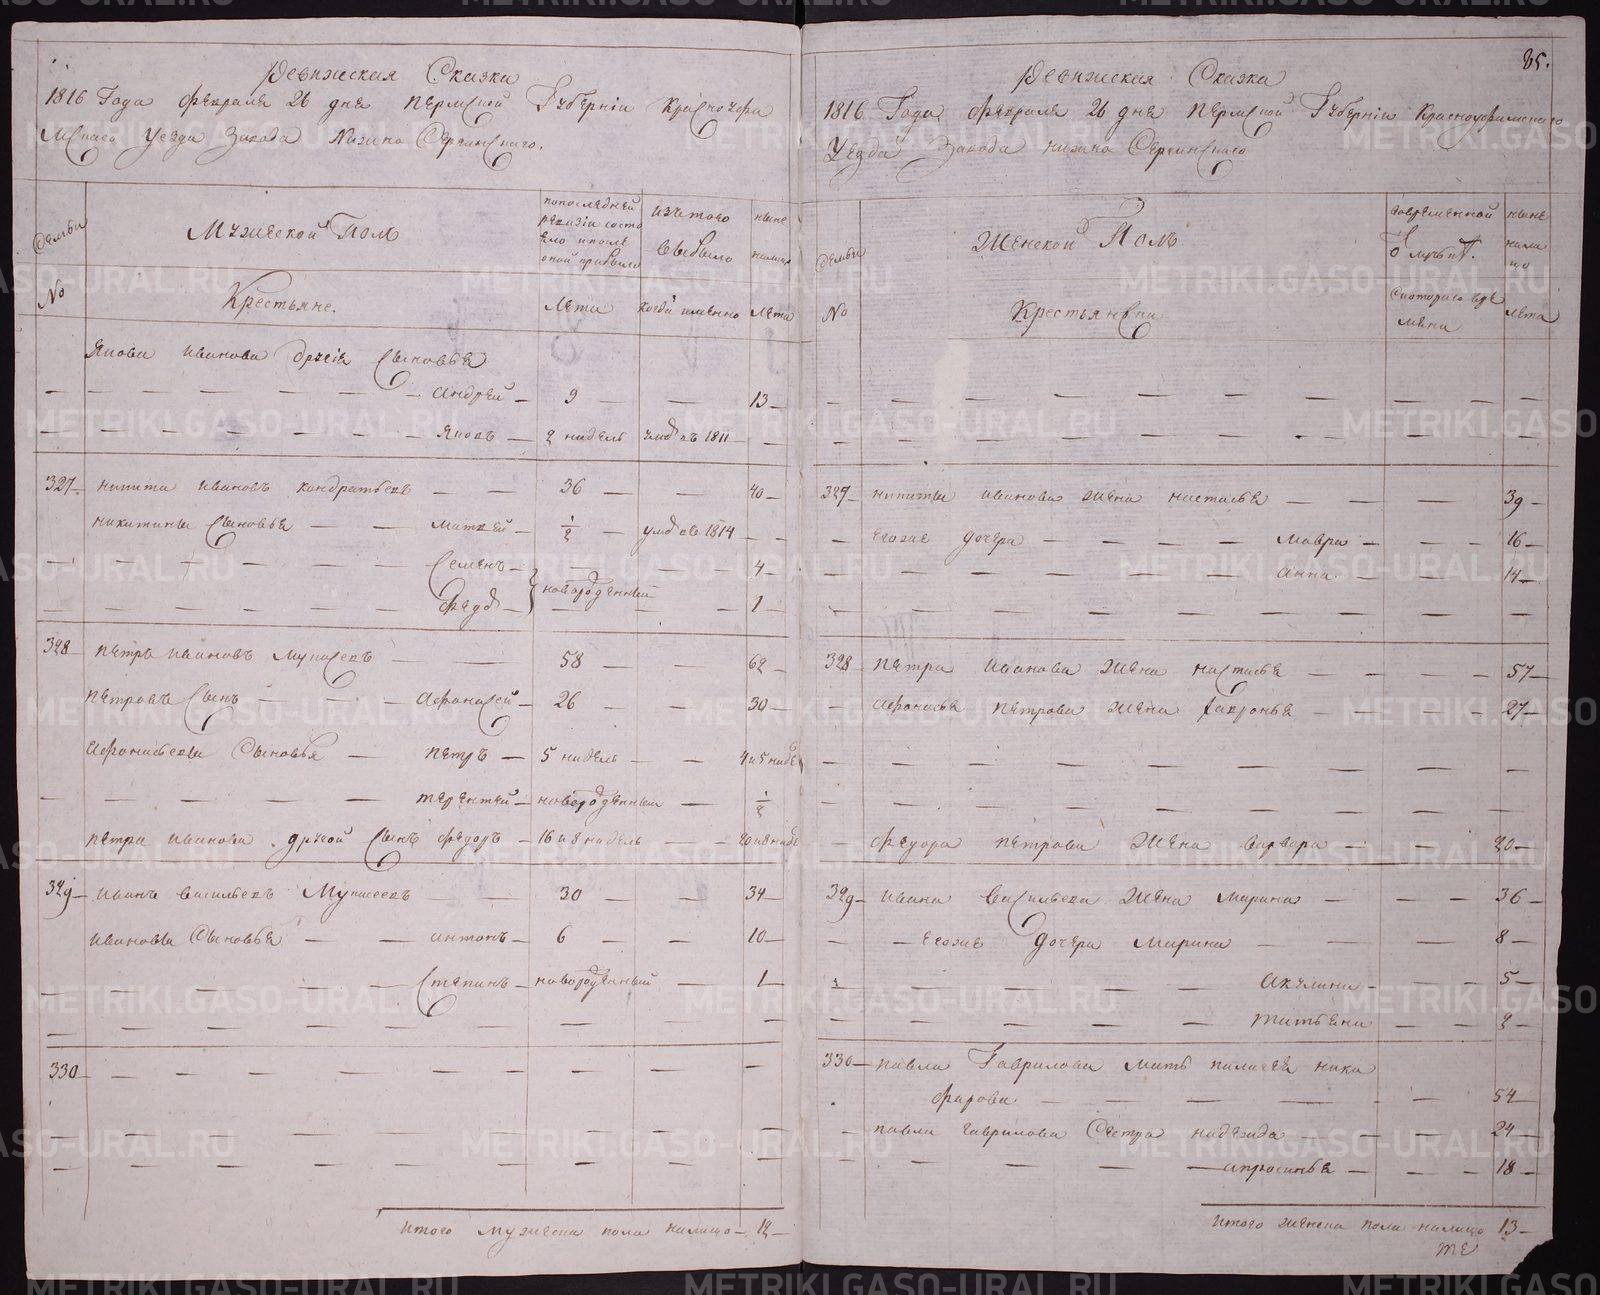 Ревижская Сказка
1816 Года февраля 26 дня пермской Губерніи Красноуфи
мскаго Уезда Завода Нижно Сергинскаго.
Семьи
Мужеской Полъ
попоследней ревизіи состояло ипосле оной прибыло
изътого выбыло
ныне налицо
№
Крестьяне.
Лета
Когда имянно
Лета
Якова Иванова другія сыновья
андрей 9 13
яковъ 2 нидель умд въ 1811
327 никита ивановъ кондратьевъ 36 40
никитины сыновья матвей 1/2 умд въ 1814
Семенъ 4
новорожденный
Федо 1
328 петръ ивановъ мукасевъ 58 62
петровъ сынъ Афонасей 26 30
Афонасьевы Сыновья петръ 5 нидель 4 и 5 ниде
терентей новорожденный 1/2
петра иванова другой сынъ федоръ 16 и 8 нидель 20 и 8 ниде
329 иванъ васильевъ Мукасеевъ 30 34
ивановы Сыновья антонъ 6 10
Степанъ новорожденный 1
330
итого мужеска пола налицо 12
85.
Ревижская Сказка
1816 Года февраля 26 дня пермской Губерніи Красноуфимскаго
Уезда Завода нижно Сергинскаго
Семьи
Женской Полъ
вовременной отлучке
ныне налицо
№
Крестьянки
Скотораго време
мяни
лета
327 никиты иванова жена настасья 39
Егоже дочери мавра 16
анна 14
328 петра иванова жена настасья 57
Афонасья петрова жена хавронья 27
федора петрова жена варвара 20
329 ивана васильева жена марина 36
Егоже дочери марина 8
акулина 5
татьяна 2
330 павла Гаврилова мать пилагея ника
фарова 54
павла гаврилова Сестра надежда 24
апросинья 18
итого женска пола налицо 13
те